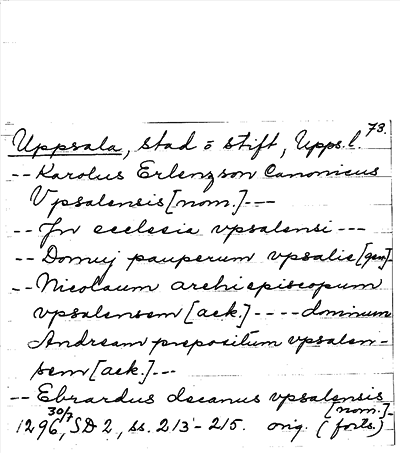 73.
Uppsala, stad o stift, Upps.l.
-- Karolus Erlengson Canonicus
Vpsalensis [nom.] ---
-- Jn ecclesia vpsalensi ---
-- Domuj pauperum vpsalie [gen]
-- Nicolaum archiepiscopum
vpsalensem [ack.] ---- dominum
Andream prepositum vpsalen-
sem [ack.] ---
-- Ebrardus decanus vpsalensis
[nom.] -
1296 30/7, SD 2, ss. 213-215. orig. (forts.)